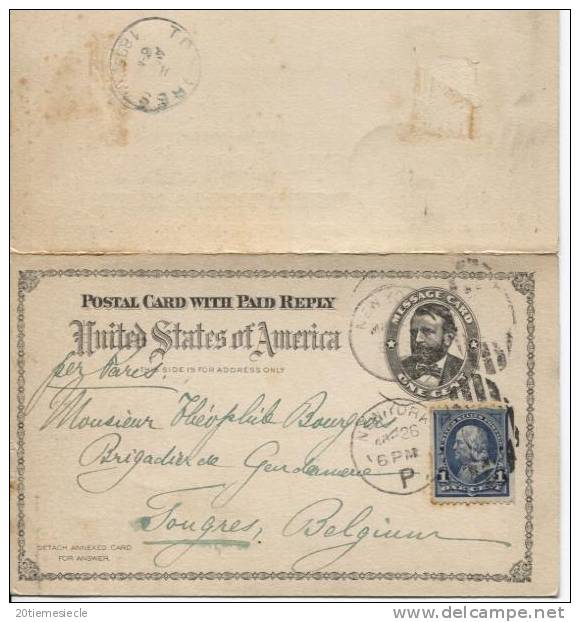 TONGRES
1895
POSTAL CARD WITH PAID REPLY
United States of America
THIS SIDE IS FOR ADDRESS ONLY
MESSAGE CARD
ONE CENT
NEW YORK
26
6 PM
P
1 1
per Paris.
Monsieur Théophile Bourgeois
Brigadier de Gendarmerie
Tongres, Belgium
DETACH ANNEXED CARD
FOR ANSWER.
20tiemesiecle
http://www.delcampe.net